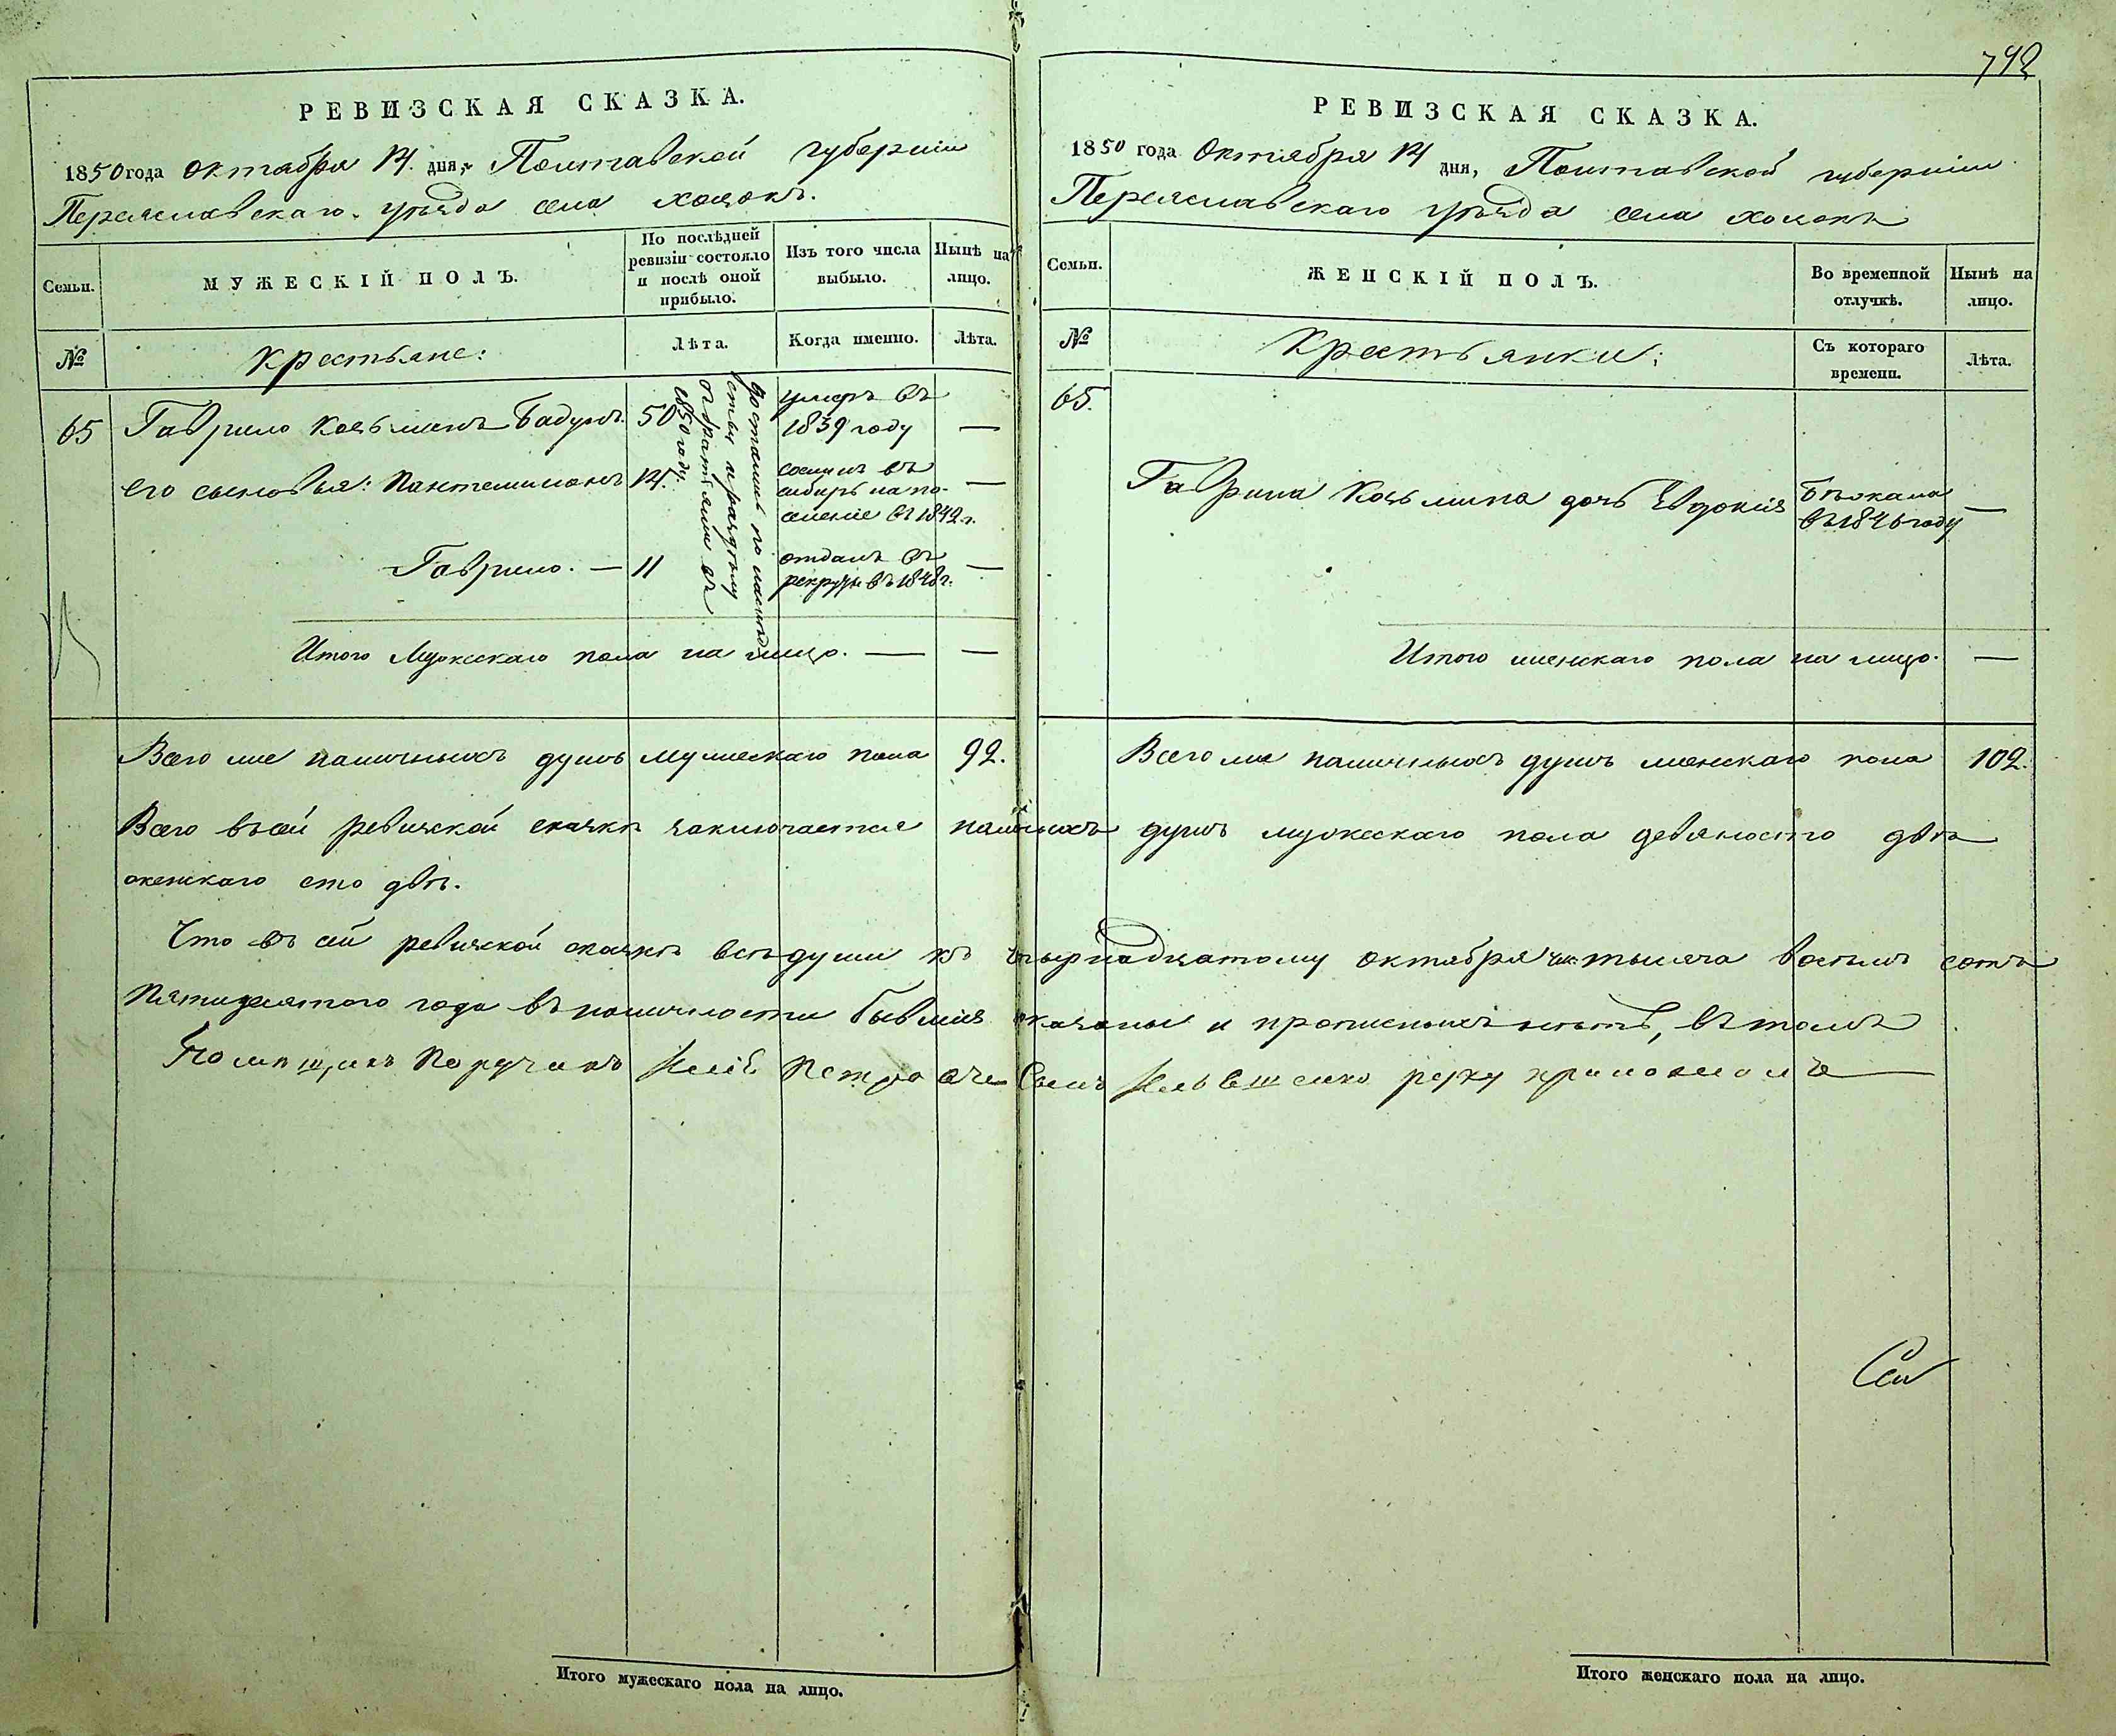 792
РЕВИЗСКАЯ СКАЗКА.
1850 года октября 14. дня, Полтавской губерніи
Переяславскаго уѣзда села хоцокъ.
Семьи.
МУЖЕСКІЙ ПОЛЪ.
По послѣдней
ревизіи состояло
и послѣ оной
прибыло.
Изъ того числа
выбыло.
Нынѣ на
лицо.
№
Крестьяне:
Лѣта.
Когда именно.
Лѣта.
65
Гаврило Козьминъ
50
умеръ въ
1839 году
—
его сыновья: Пантелимонъ
14.
сосланъ въ
сибирь на по-
селеніе въ 1842 г.
—
Гаврило. —
11
отданъ въ
рекруты въ 1848 г.
—
достались по наслѣд
ству и раздѣлу
съ братьями въ
1850 году.
Итого Мужескаго пола на лицо. —
—
Всего же наличныхъ душъ мужескаго пола
92.
РЕВИЗСКАЯ СКАЗКА.
1850 года Октября 14 дня, Полтавской губерніи
Переяславскаго уѣзда села хоцокъ
Семьи.
ЖЕНСКІЙ ПОЛЪ.
Во временной
отлучкѣ.
Нынѣ на
лицо.
№
Крестьянки:
Съ котораго
времени.
Лѣта.
65.
Гаврила Козьмина дочь Евдокія
бѣжала
въ 1846 году
—
Итого женскаго пола на лицо.
—
Всего же наличныхъ душъ женскаго пола
102.
Всего въ сей ревизской сказкѣ заключается наличныхъ душъ мужескаго пола девяносто двѣ
женскаго сто двѣ.
Что въ сей ревизской сказкѣ всѣ души къ четырнадцатому октября тысяча восемь сотъ
Пятидесятого года въ наличности бывшія показаны и прописныхъ нѣтъ, въ томъ
Помѣщикъ Поручикъ Петровъ Сынъ руку приложилъ
Итого мужескаго пола на лицо.
Итого женскаго пола на лицо.